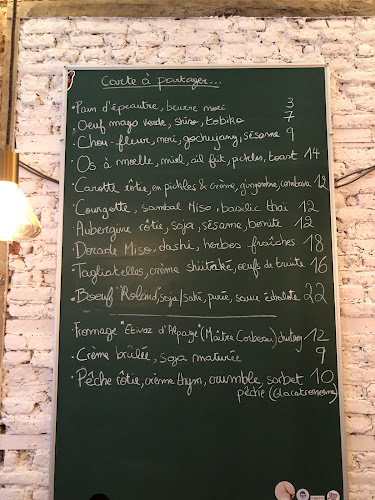 Carte à partager...
• Pain d'épeautre, beurre nori 3
• Oeuf mayo verde, shiso, tobiko 7
• Chou-fleur, nori, gochujang, sésame 9
• Os à moelle, miel, ail frit, pickles, toast 14
• Carotte rôtie, en pickles & crème, gingembre, combava 12
• Courgette, sambal Miso, basilic thaï 12
• Aubergine rôtie, soja, sésame, bonite 12
• Dorade Miso, dashi, herbes fraîches 18
• Tagliatelles, crème shiitaké, oeufs de truite 16
• Boeuf "Roland", soja/saké, purée, sauce échalote 22
• Fromage "Etivaz d'Alpage" (Maître Corbeau) chutney 12
• Crème brûlée, soja maturée 9
• Pêche rôtie, crème thym, crumble, sorbet 10
pêche (Glacatsonome)